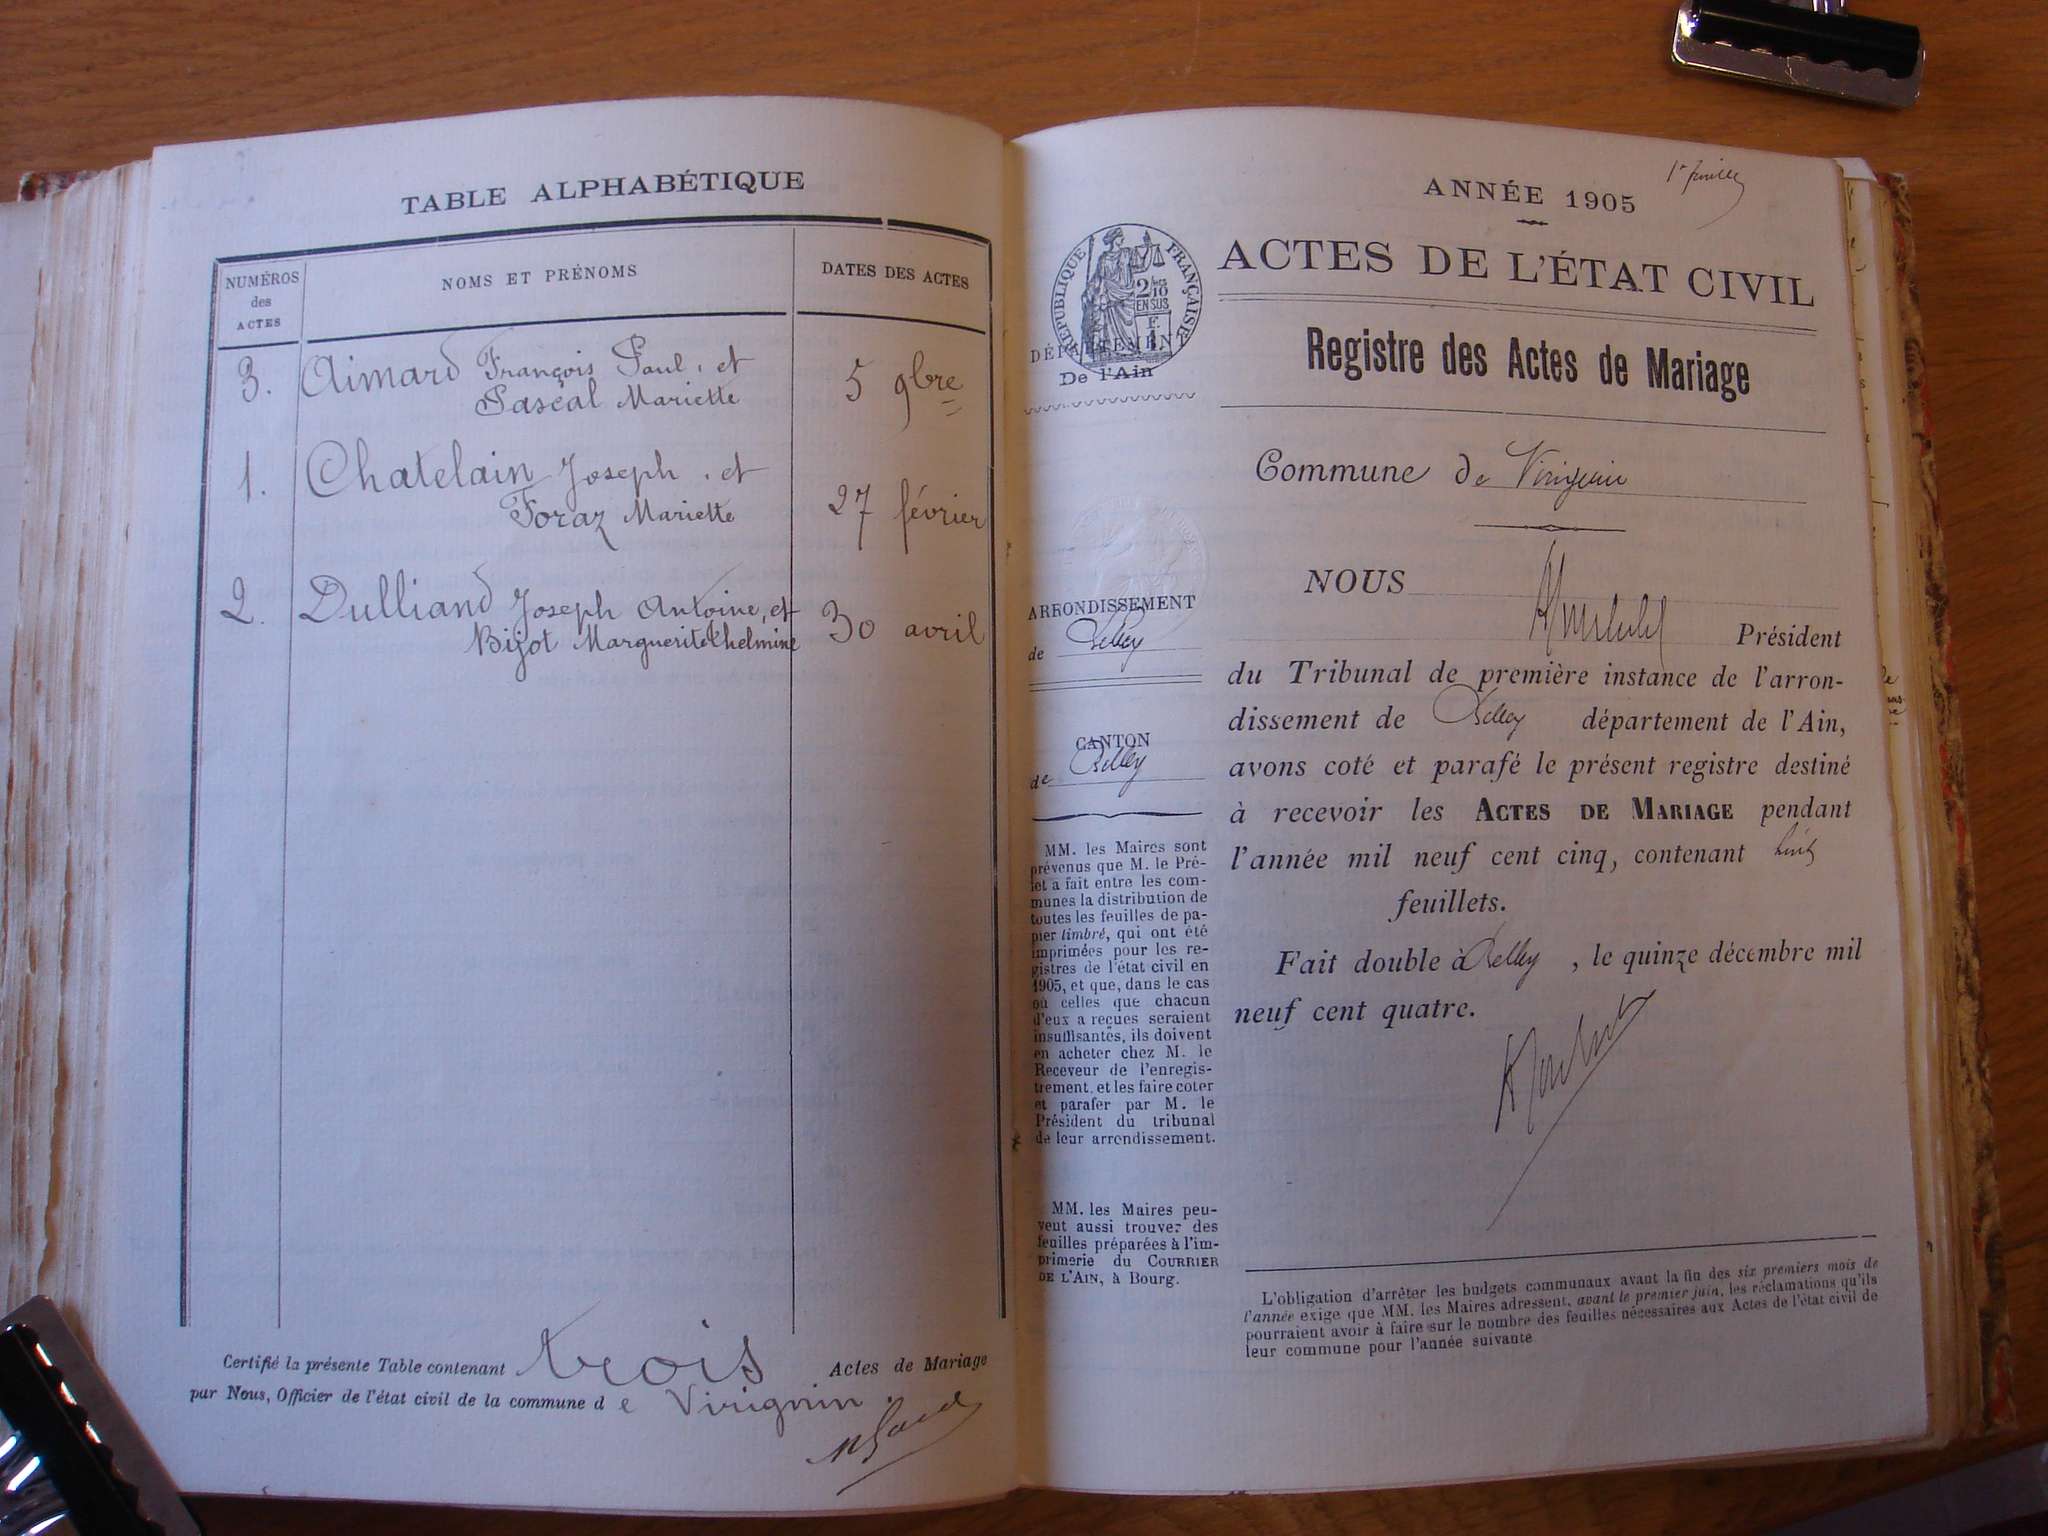 TABLE ALPHABÉTIQUE
NUMÉROS
des
ACTES
NOMS ET PRÉNOMS
DATES DES ACTES
3. Aimard François Paul, et
Pascal Mariette
5 9bre
1. Chatelain Joseph, et
Foraz Mariette
27 février
2. Dulliand Joseph Antoine, et
Bijot Marguerite Thelmine
30 avril
Certifié la présente Table contenant trois Actes de Mariage
par Nous, Officier de l'état civil de la commune de Virignin.
1er feuillet
ANNÉE 1905
ACTES DE L'ÉTAT CIVIL
RÉPUBLIQUE FRANÇAISE
2/10
EN SUS
DÉPARTEMENT
De l'Ain
Registre des Actes de Mariage
Commune de Virignin
ARRONDISSEMENT
de Belley
CANTON
de Belley
MM. les Maires sont
prévenus que M. le Pré-
fet a fait entre les com-
munes la distribution de
toutes les feuilles de pa-
pier timbré, qui ont été
imprimées pour les re-
gistres de l'état civil en
1905, et que, dans le cas
où celles que chacun
d'eux a reçues seraient
insuffisantes, ils doivent
en acheter chez M. le
Receveur de l'enregis-
trement, et les faire coter
et parafer par M. le
Président du tribunal
de leur arrondissement.
MM. les Maires peu-
vent aussi trouver des
feuilles préparées à l'im-
primerie du COURRIER
DE L'AIN, à Bourg.
NOUS
Président
du Tribunal de première instance de l'arron-
dissement de Belley département de l'Ain,
avons coté et parafé le présent registre destiné
à recevoir les ACTES DE MARIAGE pendant
l'année mil neuf cent cinq, contenant huit
feuillets.
Fait double à Belley, le quinze décembre mil
neuf cent quatre.
L'obligation d'arrêter les budgets communaux avant la fin des six premiers mois de
l'année exige que MM. les Maires adressent, avant le premier juin, les réclamations qu'ils
pourraient avoir à faire sur le nombre des feuilles nécessaires aux Actes de l'état civil de
leur commune pour l'année suivante